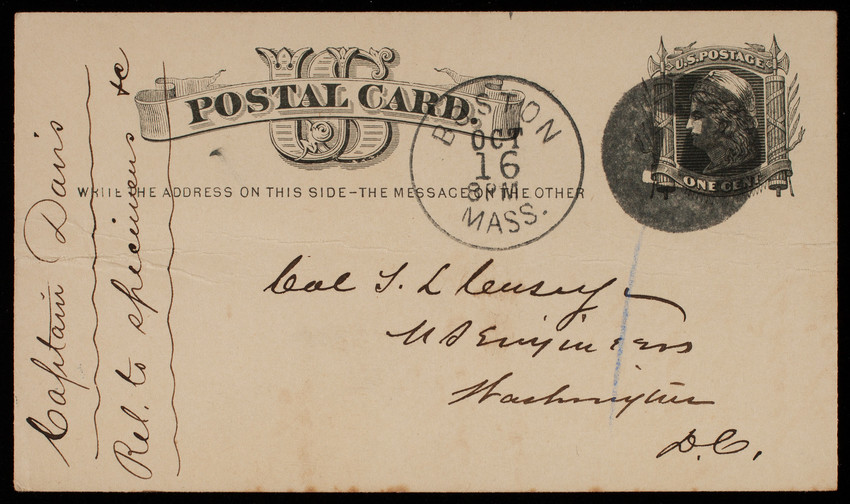 US
POSTAL CARD.
WRITE THE ADDRESS ON THIS SIDE—THE MESSAGE ON THE OTHER
BOSTON
OCT
16
8 PM
MASS.
U.S. POSTAGE
ONE CENT
Col T. L. Casey
US Engineers
Washington
D.C.
Captain Davis
Rel. to specimens &c